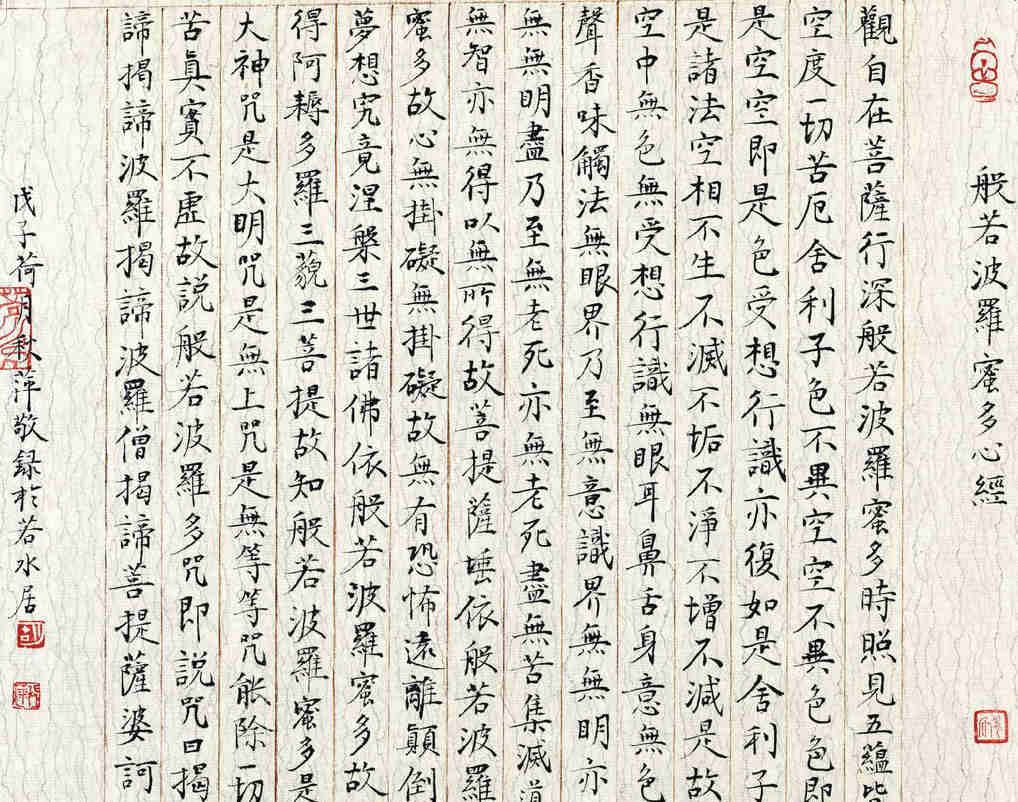 般若波羅蜜多心經
觀自在菩薩行深般若波羅蜜多時照見五蘊皆
空度一切苦厄舍利子色不異空空不異色色即
是空空即是色受想行識亦復如是舍利子
是諸法空相不生不滅不垢不淨不增不減是故
空中無色無受想行識無眼耳鼻舌身意無色
聲香味觸法無眼界乃至無意識界無無明亦
無無明盡乃至無老死亦無老死盡無苦集滅道
無智亦無得以無所得故菩提薩埵依般若波羅
蜜多故心無掛礙無掛礙故無有恐怖遠離顛倒
夢想究竟涅槃三世諸佛依般若波羅蜜多故
得阿耨多羅三藐三菩提故知般若波羅蜜多是
大神咒是大明咒是無上咒是無等等咒能除一切
苦真實不虛故説般若波羅多咒即説咒曰揭
諦揭諦波羅揭諦波羅僧揭諦菩提薩婆訶
戊子荷月秋萍敬録於若水居